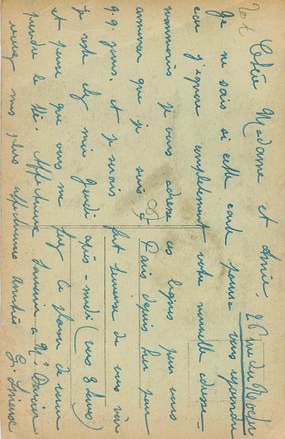 Chère Madame et Amie.
Je ne sais si cette carte pourra vous rejoindre
car j'ignore complètement votre nouvelle adresse
néanmoins je vous adresse ces lignes pour vous
annoncer que je suis à Paris depuis hier pour
q.q. jours. et je serais fort heureuse de vous voir
je reste chez moi jeudi après-midi (vers 3 heures)
et pense que vous me ferez le plaisir de venir
prendre le thé. Affectueux souvenir à Mr
mes plus affectueuses amitiés
26 rue du